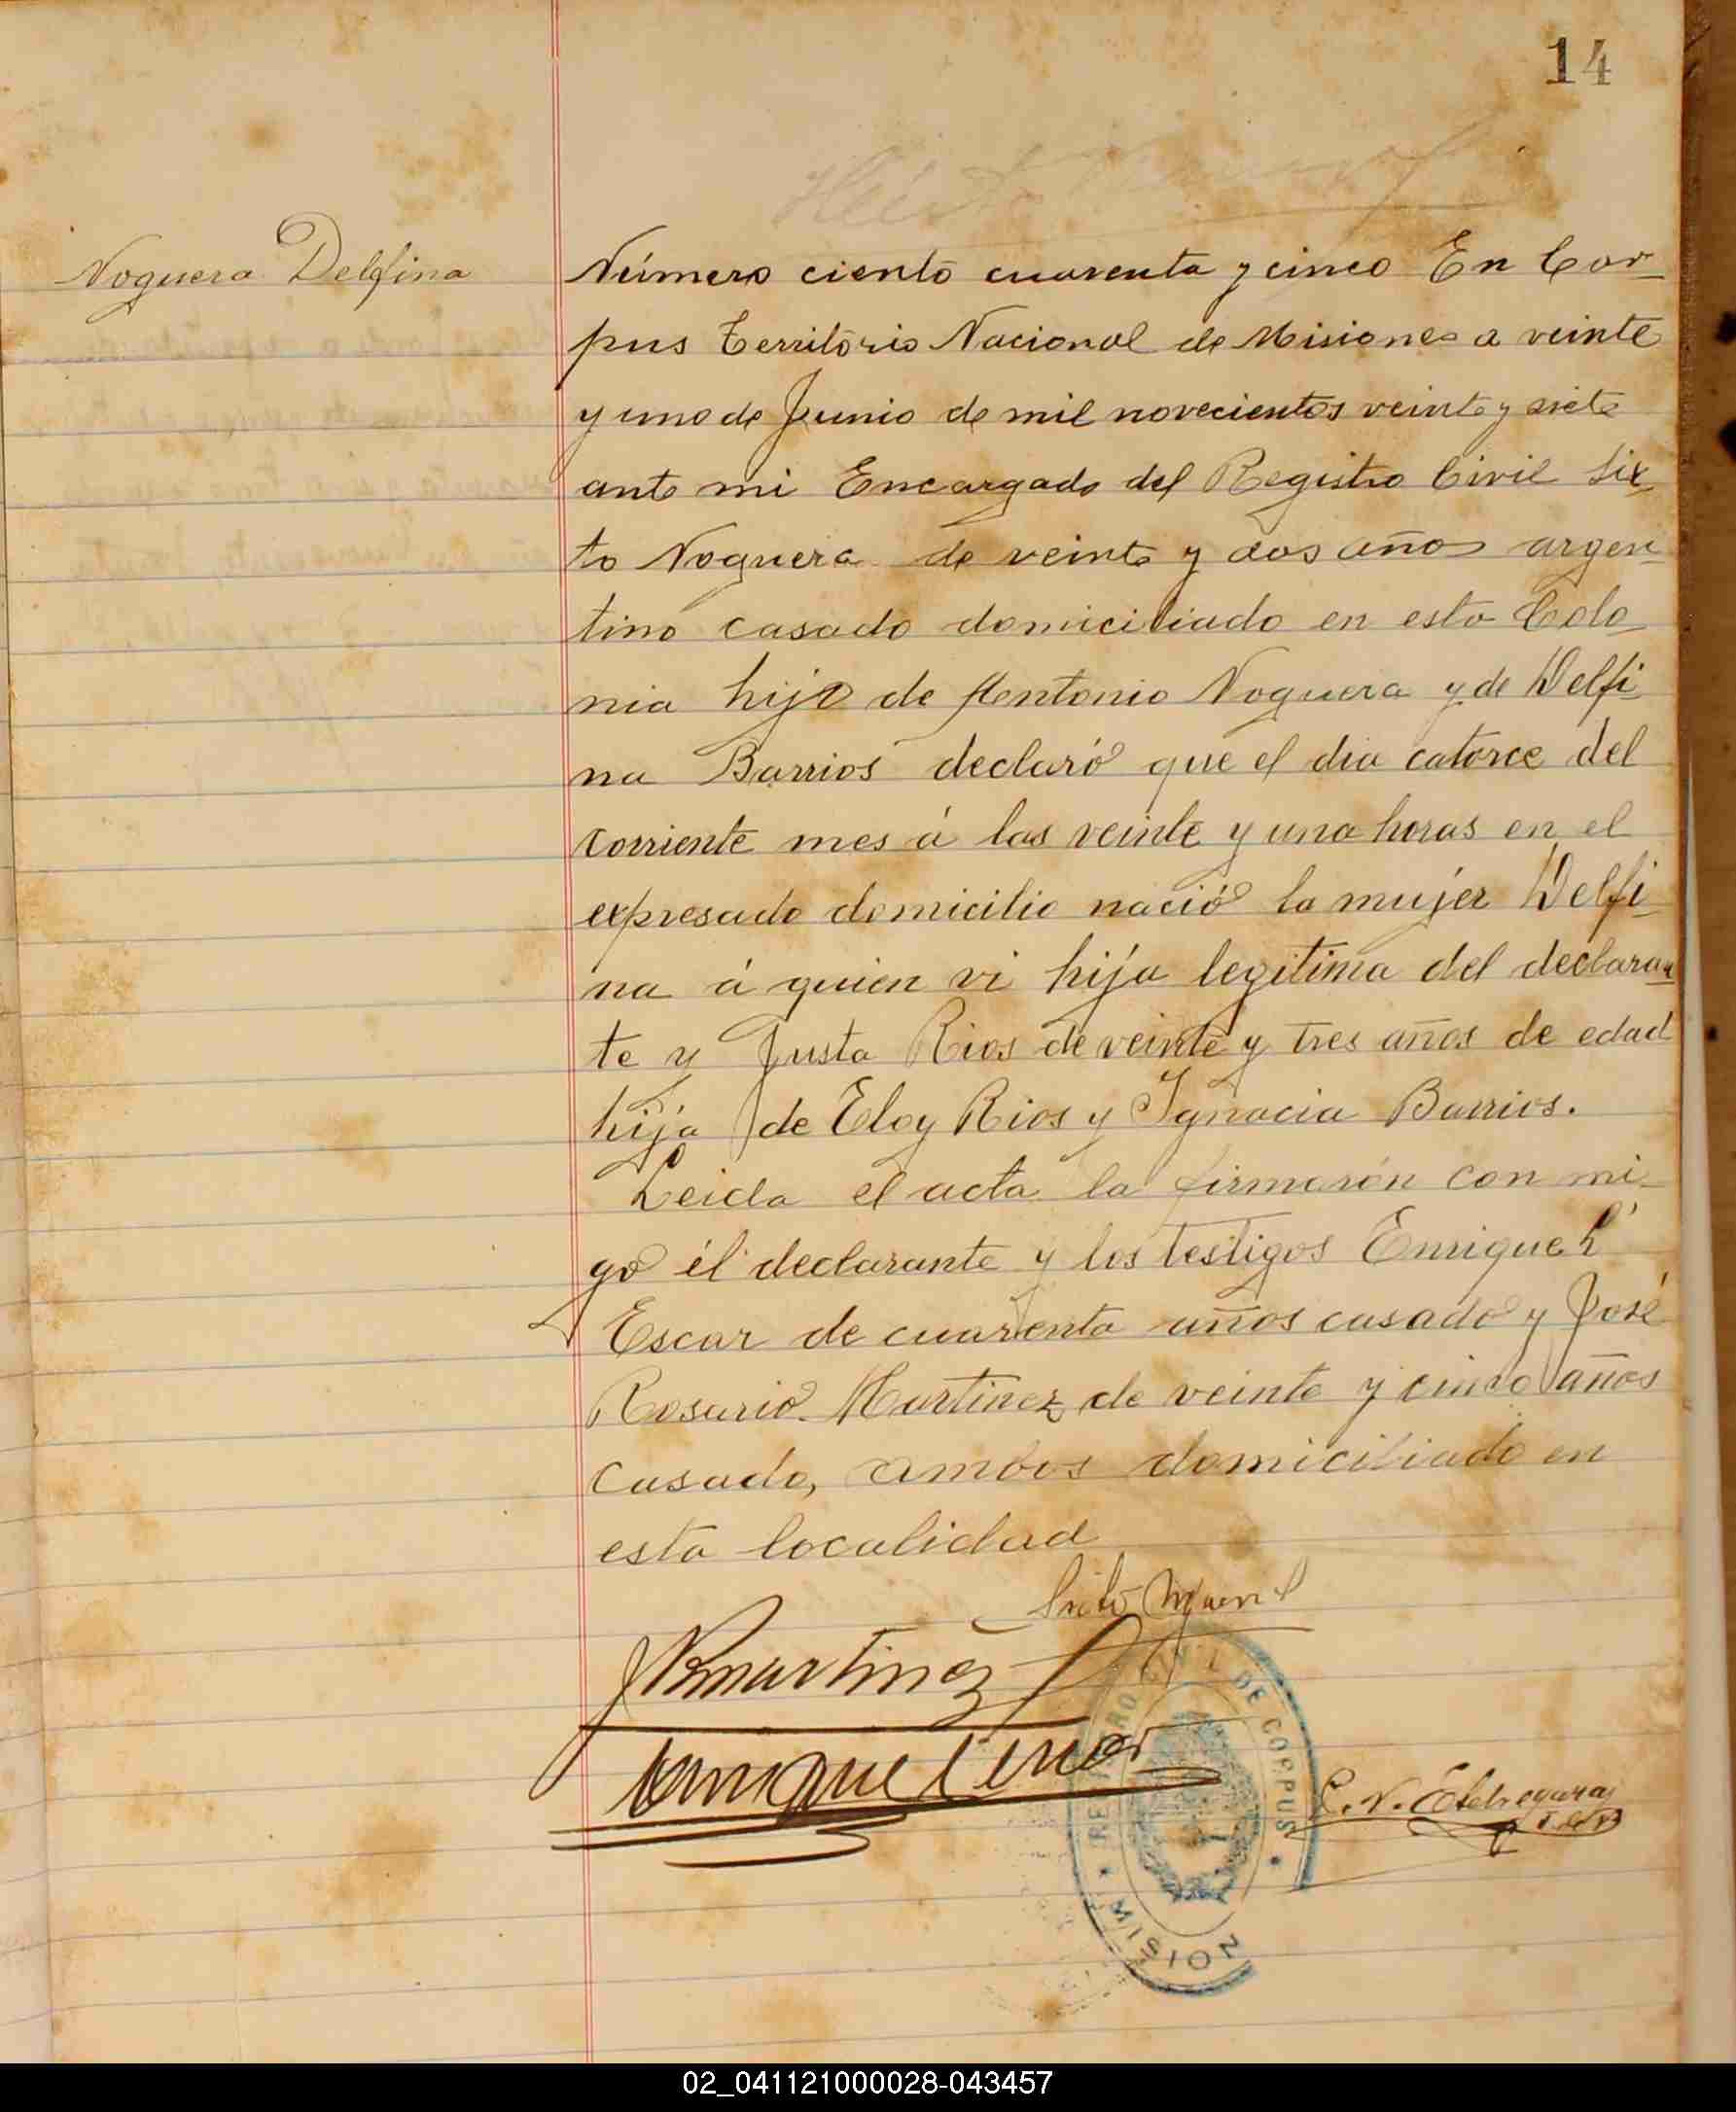 14
Noguera Delfina
Número ciento cuarenta y cinco En Cor-
pus Territorio Nacional de Misiones a veinte
y uno de Junio de mil novecientos veinte y siete
ante mi Encargado del Registro Civil Six
to Noguera de veinte y dos años argen-
tino casado domiciliado en esta Colo-
nia hijo de Antonio Noguera y de Delfi
na Barrios declaró que el dia catorce del
corriente mes á las veinte y una horas en el
expresado domicilio nació la mujer Delfi-
na á quien vi hija legitima del declaran
te y Justa Rios de veinte y tres años de edad
hija de Eloy Rios y Ignacia Barrios.
Leida el acta la firmarón con mi-
go él declarante y los testigos Enrique
Escar de cuarenta años casado y José
Rosario Martinez de veinte y cinco años
casado, ambos domiciliado en
esta localidad
JRMartinez
Enrique
REGISTRO CIVIL DE CORPUS
MISION
02_041121000028-043457